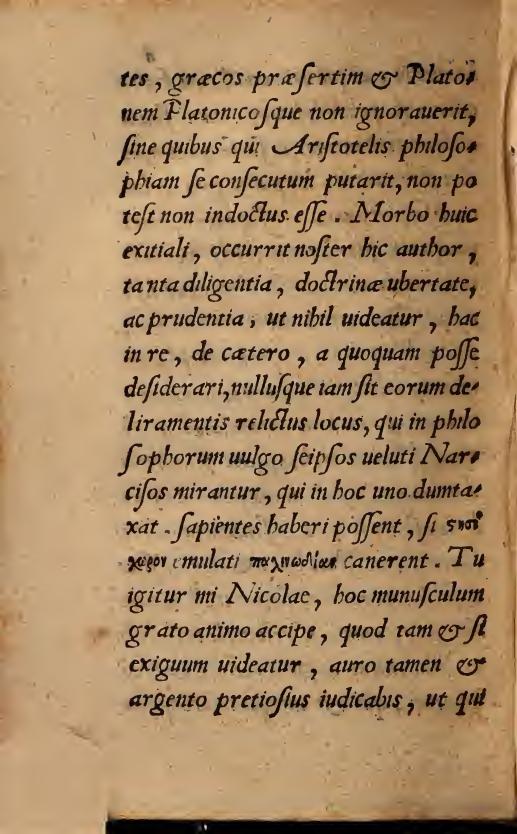 tes, græcos præſertim & Plato⸗
nem Platonicoſque non ignorauerit,
ſine quibus qui Ariſtotelis philoſo⸗
phiam ſe conſecutum putarit, non po
teſt non indoctus eſſe. Morbo huic
exitiali, occurrit noſter hic author,
tanta diligentia, doctrinæ ubertate,
ac prudentia, ut nihil uideatur, hac
in re, de cætero, a quoquam poſſe
deſiderari, nulluſque iam ſit eorum de⸗
liramentis relictus locus, qui in philo
ſophorum uulgo ſeipſos ueluti Nar⸗
ciſos mirantur, qui in hoc uno dumta⸗
xat ſapientes haberi poſſent, ſi ςησί
χορον emulati παλινωδίαν canerent. Tu
igitur mi Nicolae, hoc munuſculum
grato animo accipe, quod tam & ſi
exiguum uideatur, auro tamen &
argento pretioſius iudicabis, ut qui